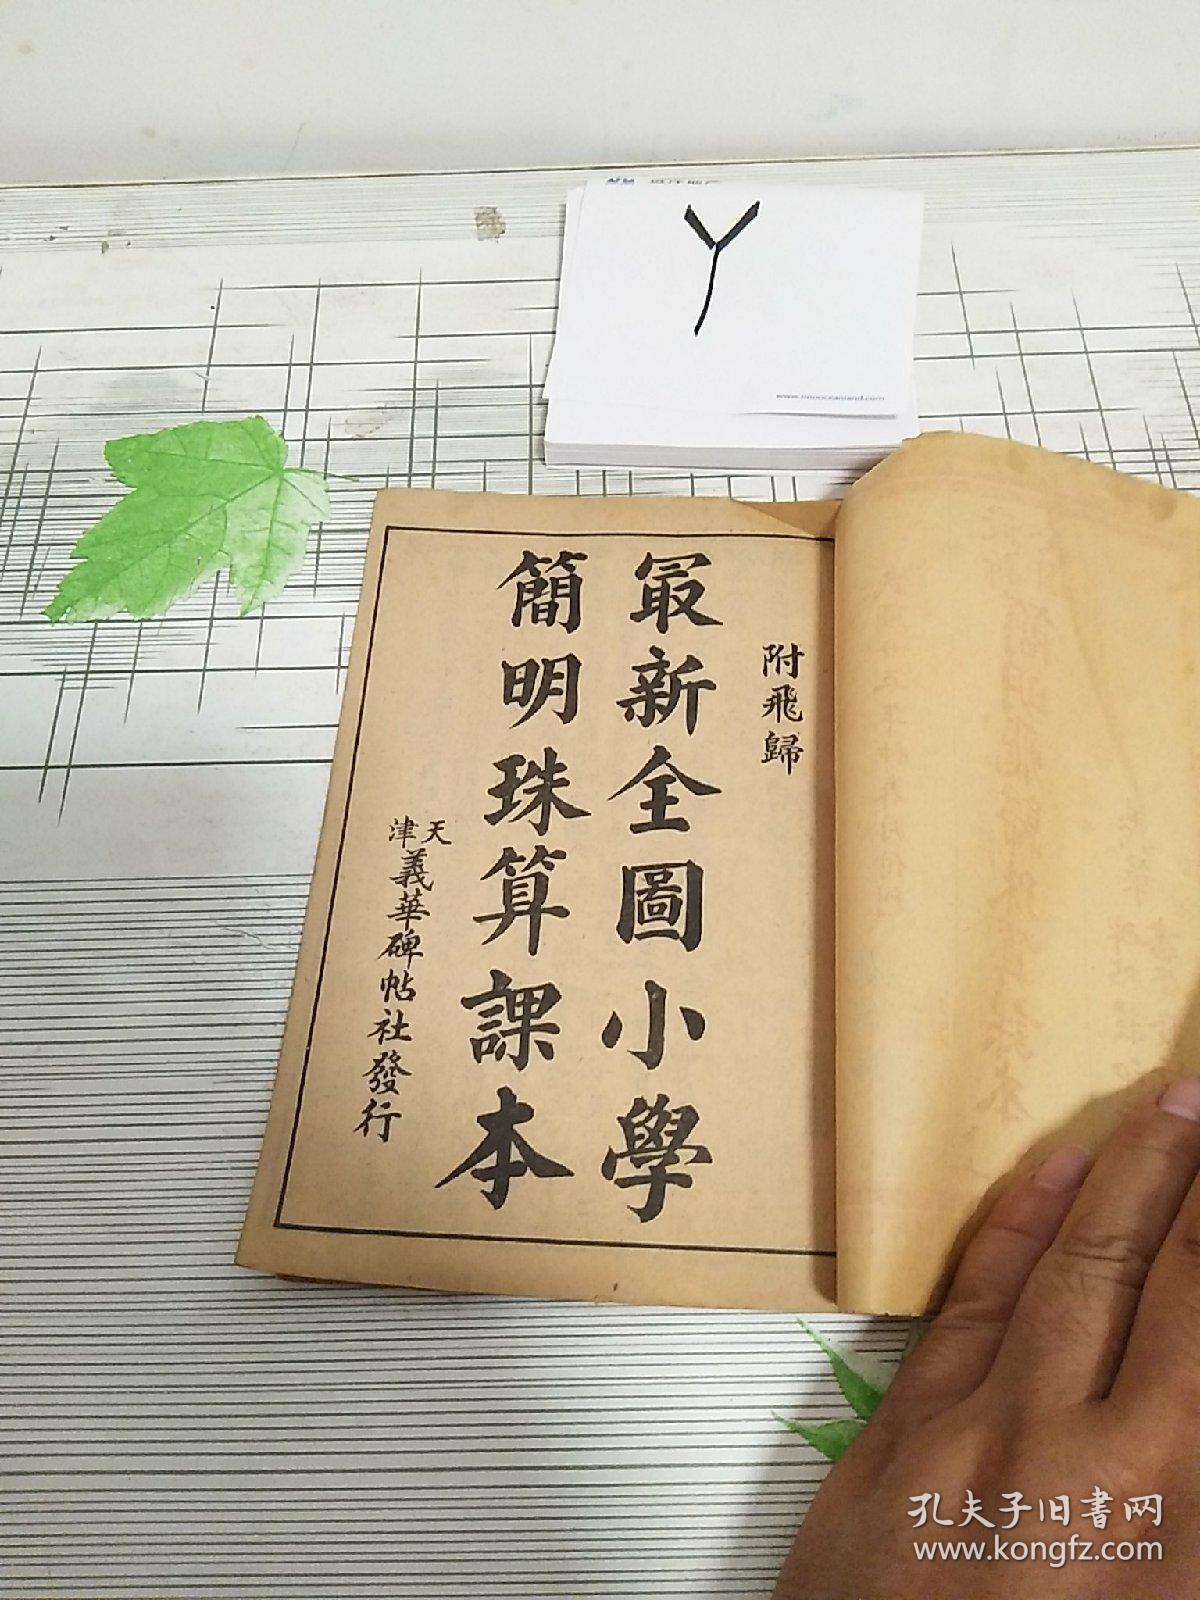 Y
www.sinooceanland.com
附飛歸
最新全圖小學
簡明珠算課本
天津義華碑帖社發行
孔夫子旧书网
www.kongfz.com